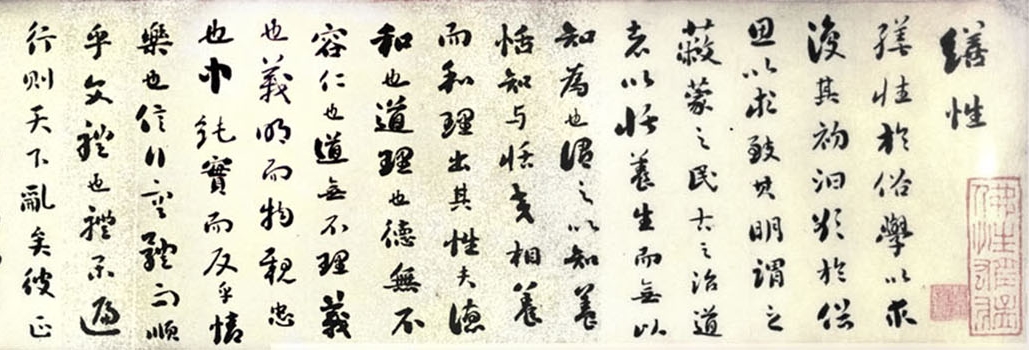 繕性
繕性於俗學以求
復其初汩欲於俗
思以求致其明謂之
蔽蒙之民古之治道
者以恬養生而無以
知為也謂之以知養
恬知与恬交相養
而和理出其性夫德
和也道理也德無不
容仁也道無不理義
也義明而物親忠
也中純實而反乎情
樂也信行容體而順
乎文禮也禮樂遍
行則天下亂矣彼正